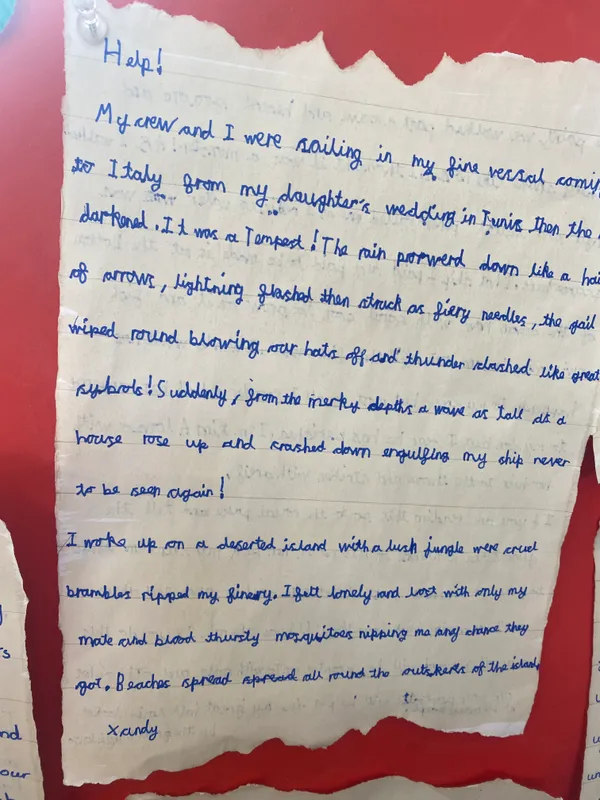 Help!
My crew and I were sailing in my fine versal comin
to Italay from my daughter's wedding in Tunis then the
darkened. It was a Tempest! The rain porwerd down like a hai
of arrows, lightning flashed then struck as fiery needles, the gail
wiped round blowing our hats off and thunder clashed like great
symbrols! Suddenly, from the merky depths a wave as tall as a
house rose up and crashed down engulfing my ship never
to be seen again!
I woke up on a deserted island with a lush jungle were cruel
brambles ripped my finery. I felt lonely and lost with only my
mate and blood thursty mosquitoes nipping me any chance they
got. Beaches spread spread all round the outskerts of the island
xandy